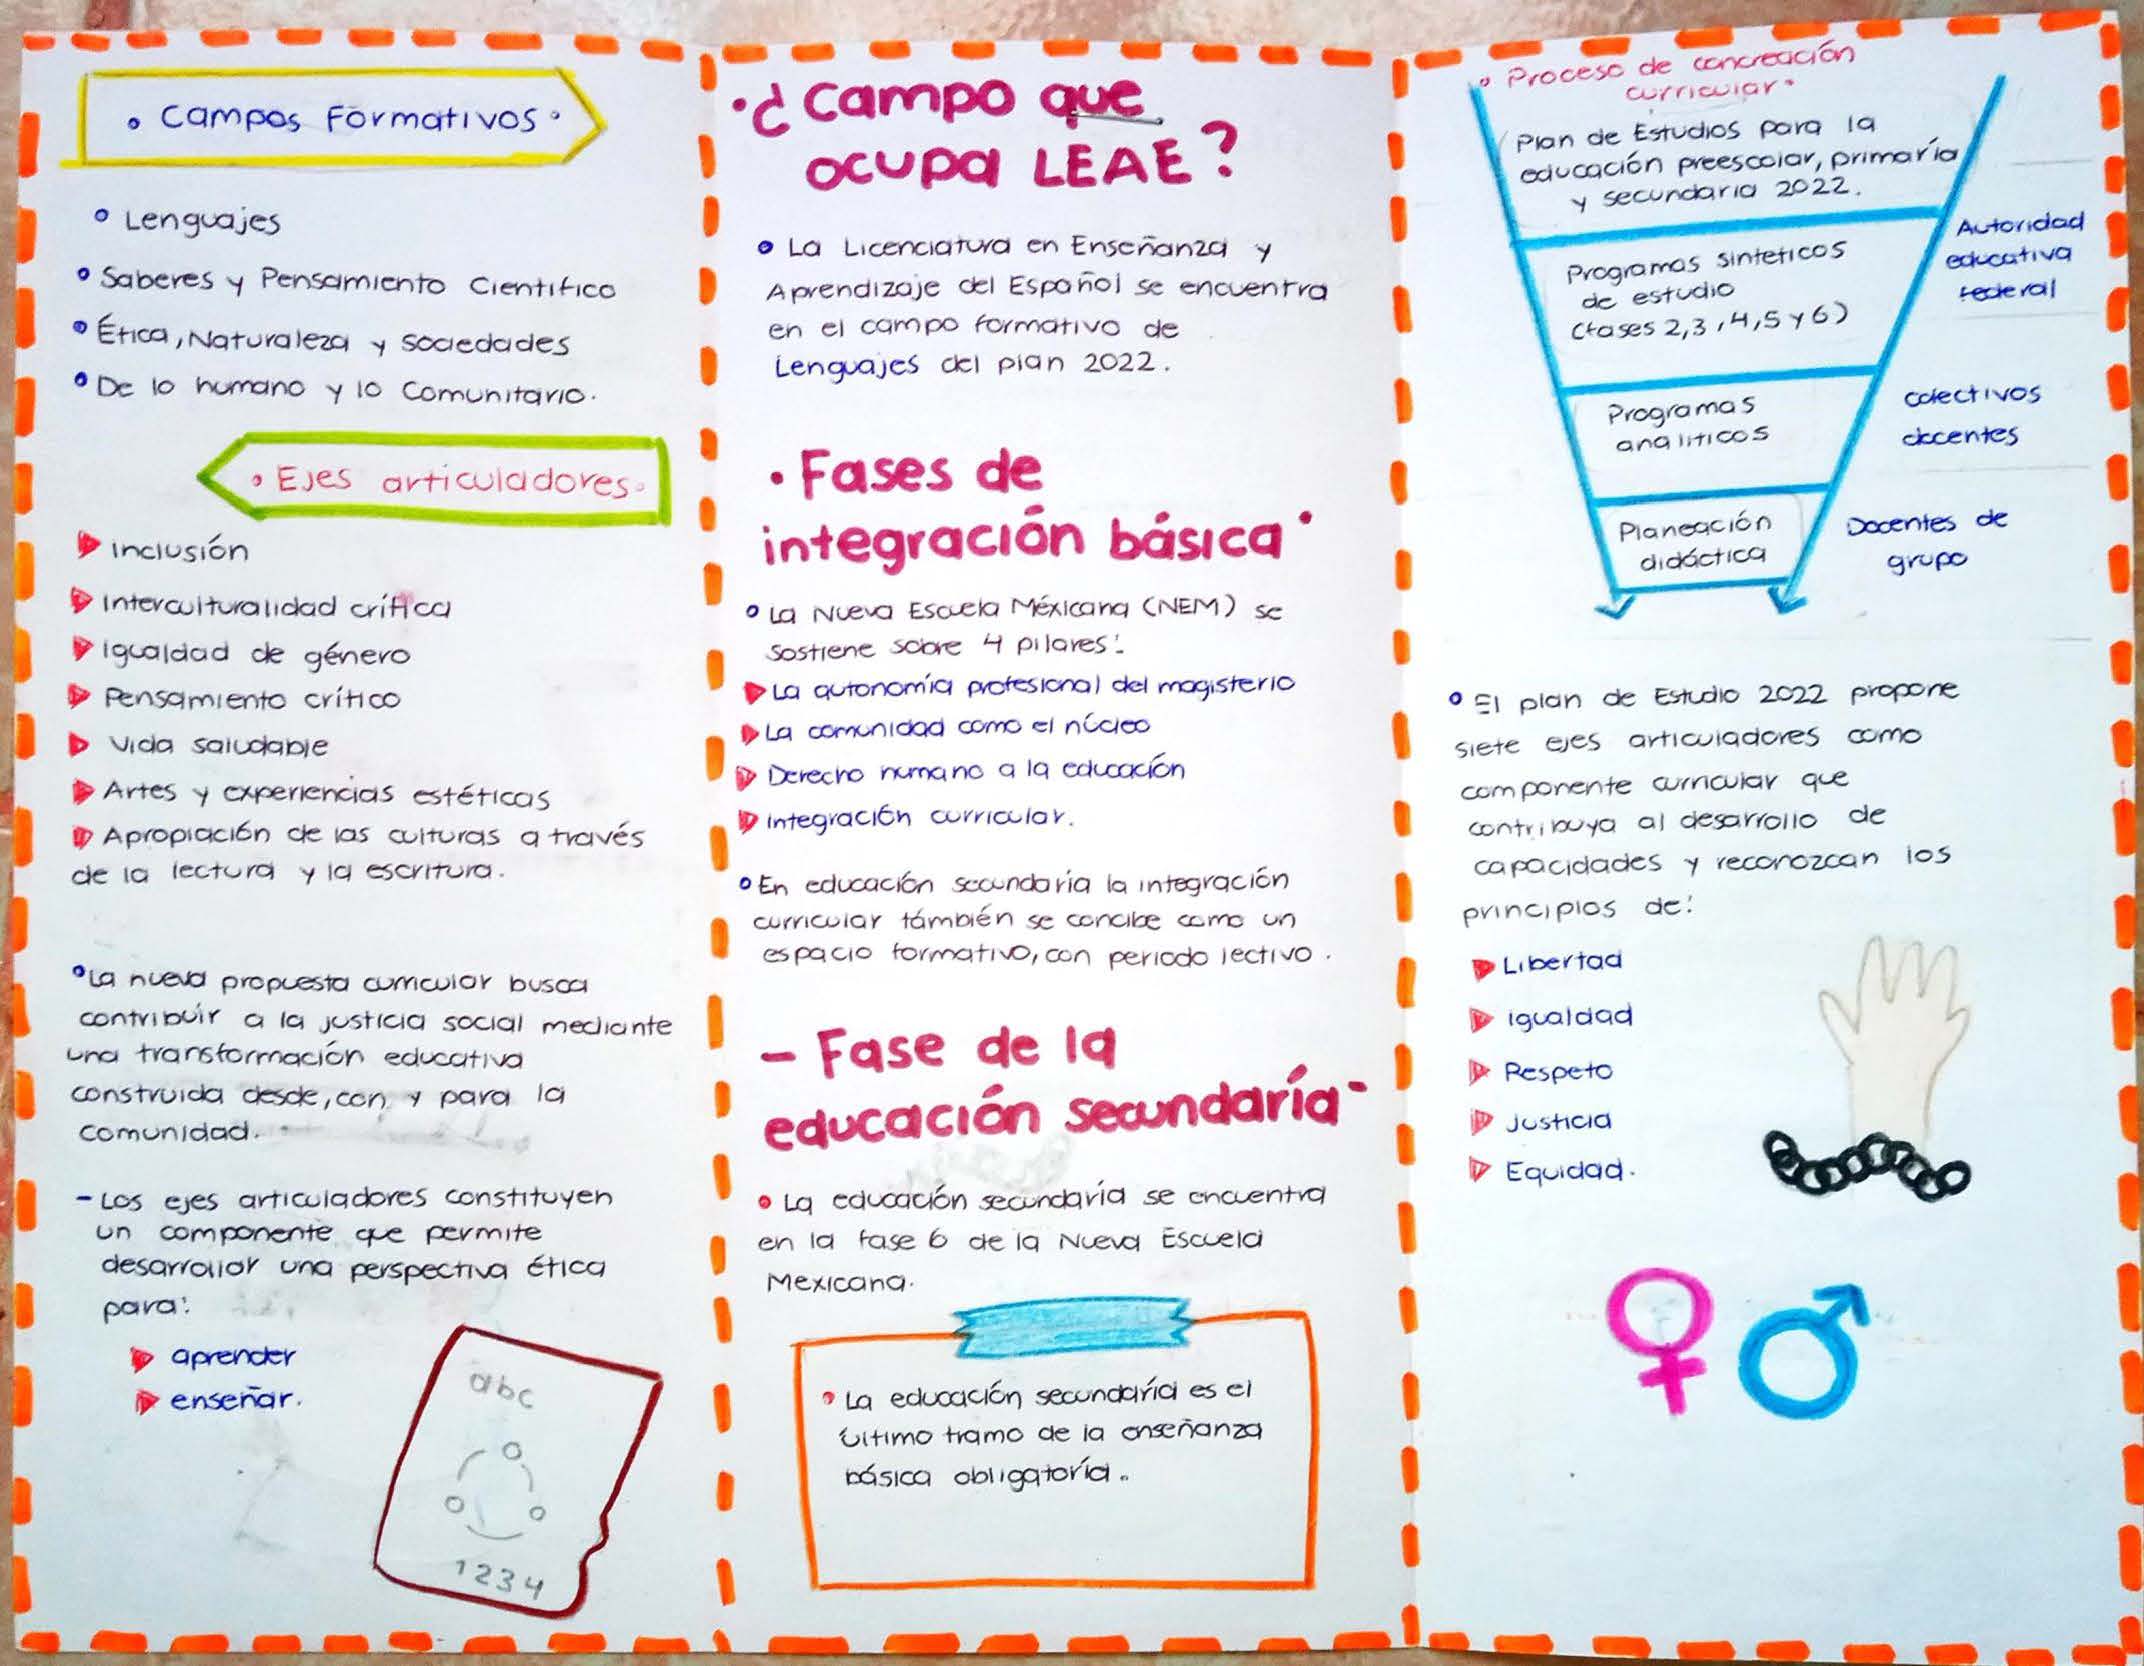 • Campos Formativos •
• Lenguajes
• Saberes y Pensamiento Cientifico
• Ética, Naturaleza y sociedades
• De lo humano y lo Comunitario.
• Ejes articuladores •
Inclusión
Interculturalidad crítica
Igualdad de género
Pensamiento crítico
Vida saludable
Artes y experiencias estéticas
Apropiación de las culturas a través
de la lectura y la escritura.
• La nueva propuesta curricular busca
contribuír a la justicia social mediante
una transformación educativa
construida desde, con y para la
comunidad.
- Los ejes articuladores constituyen
un componente que permite
desarrollar una perspectiva ética
para:
aprender
enseñar.
abc
1234
• ¿Campo que
ocupa LEAE?
• La Licenciatura en Enseñanza y
Aprendizaje del Español se encuentra
en el campo formativo de
Lenguajes del plan 2022.
• Fases de
integración básica •
• La Nueva Escuela Méxicana (NEM) se
sostiene sobre 4 pilares:
La autonomía profesional del magisterio
La comunidad como el núcleo
Derecho humano a la educación
Integración curricular.
• En educación secundaria la integración
curricular támbién se concibe como un
espacio formativo, con periodo lectivo.
- Fase de la
educación secundaría -
• La educación secundaría se encuentra
en la fase 6 de la Nueva Escuela
Mexicana.
• La educación secundaría es el
último tramo de la enseñanza
básica obligatoría.
• Proceso de concreación
curricular •
Plan de Estudios para la
educación preescolar, primaria
y secundaria 2022.
Programas sinteticos
de estudio
(fases 2,3,4,5 y 6)
Autoridad
educativa
federal
Programas
analiticos
colectivos
docentes
Planeación
didáctica
Docentes de
grupo
• El plan de Estudio 2022 propone
siete ejes articuladores como
componente curricular que
contribuya al desarrollo de
capacidades y reconozcan los
principios de:
Libertad
igualdad
Respeto
Justicia
Equidad.